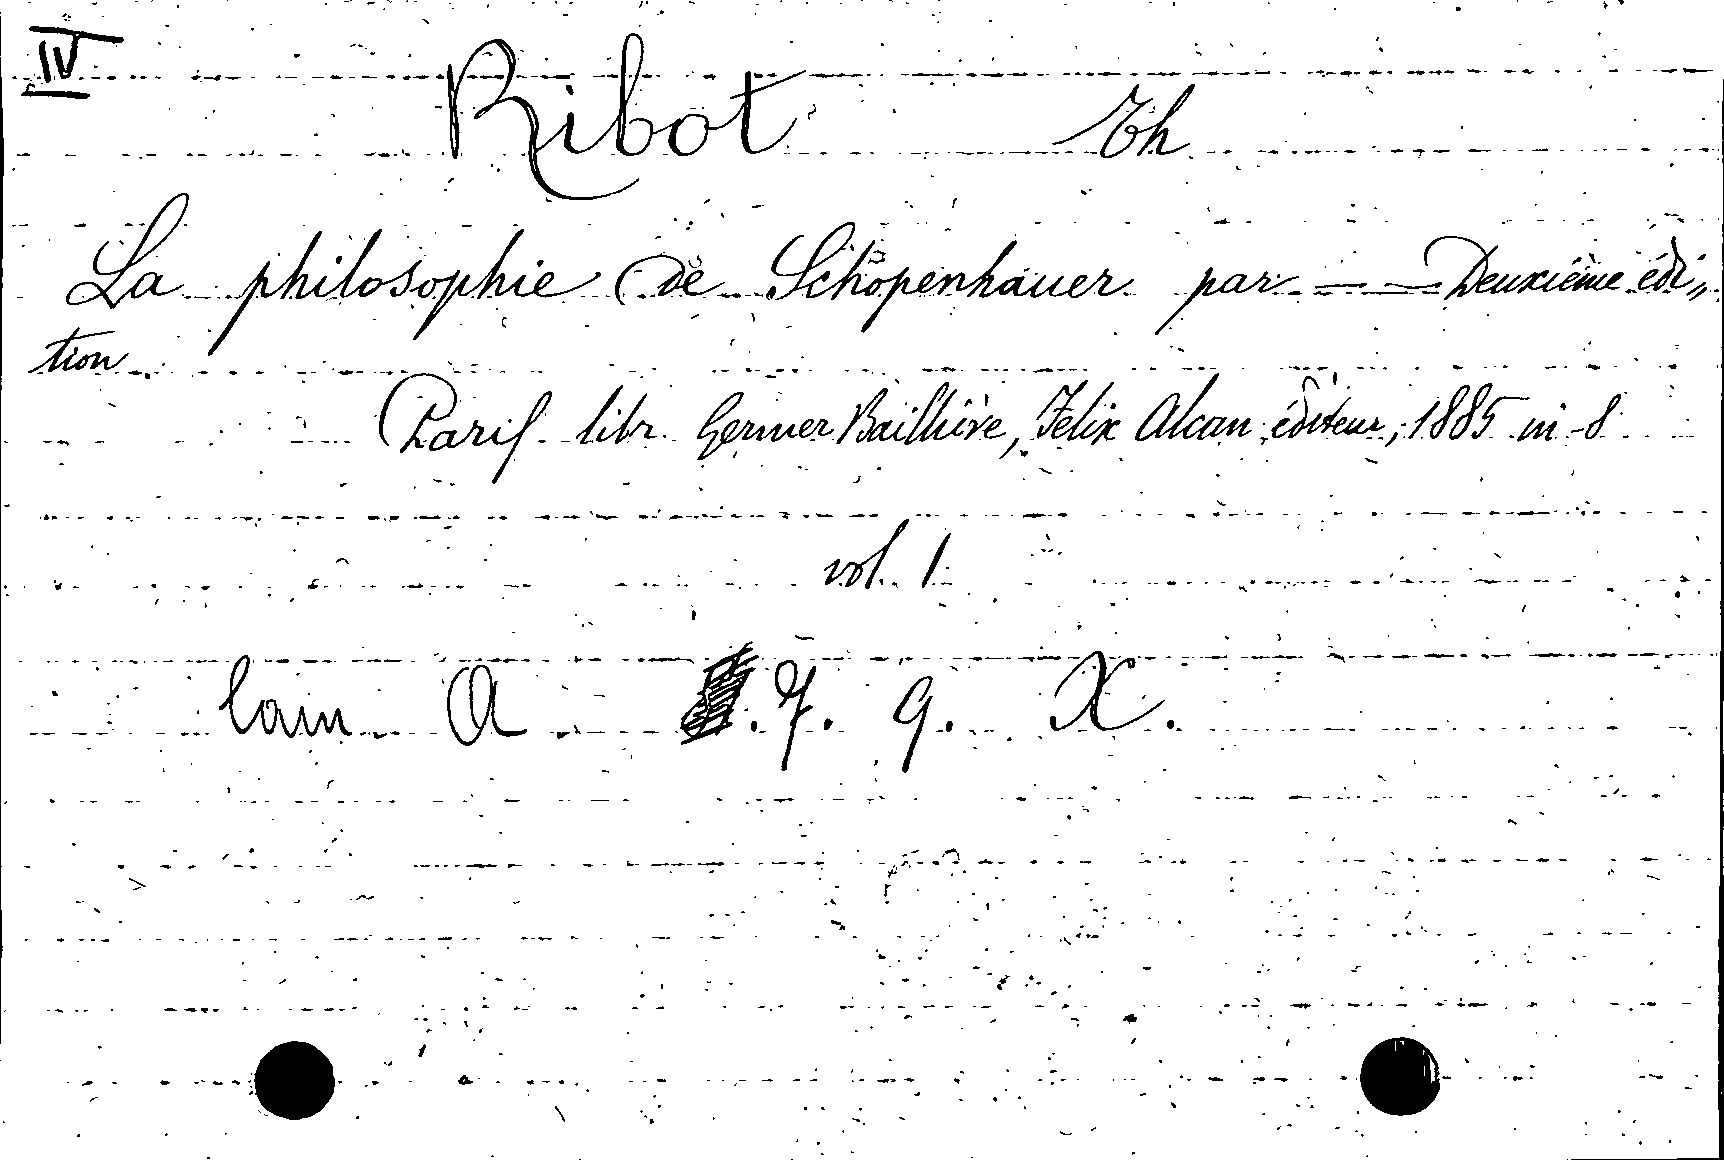 IV
Ribot Th
La philosophie de Schopenhauer par — — Deuxième édi„
tion
Paris libr Germer Baillière, Felix Alcan éditeur, 1885 in-8
vol. 1
Cam A .7. 9. X.